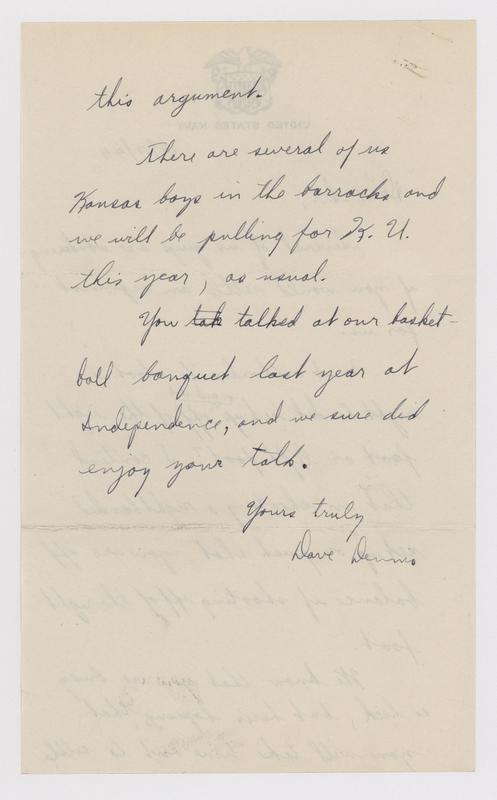 this argument.
There are several of us
Kansas boys in the barracks and
we will be pulling for K. U.
this year, as usual.
You tak talked at our basket-
ball banquet last year at
Independence, and we sure did
enjoy your talk.
Yours truly
Dave Dennis